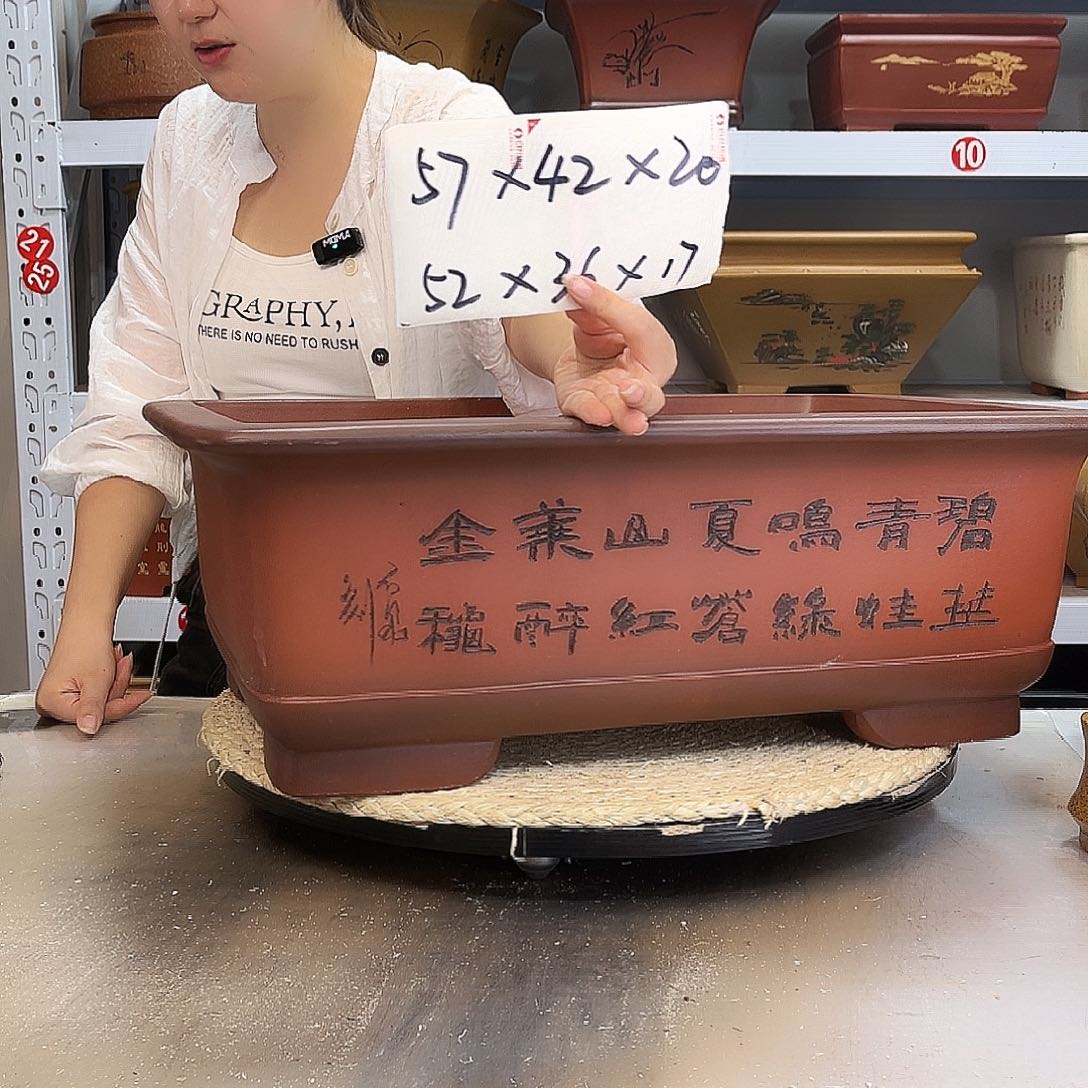 57×42×20
52×36×17
GRAPHY,
THERE IS NO NEED TO RUSH
MOMA
碧
青蛙
鳴綠
夏蒼
山紅
葉醉
金龝
石泉刻
10
21
25